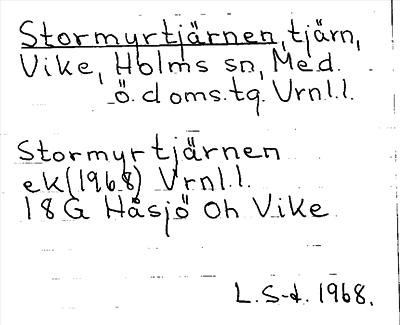 Stormyrtjärnen, tjärn,
Vike, Holms sn, Med.
ö. doms.tg. Vrnl.l.
Stormyrtjärnen
ek(1968) Vrnl.l.
18G Håsjö Oh Vike
L.S-d. 1968.